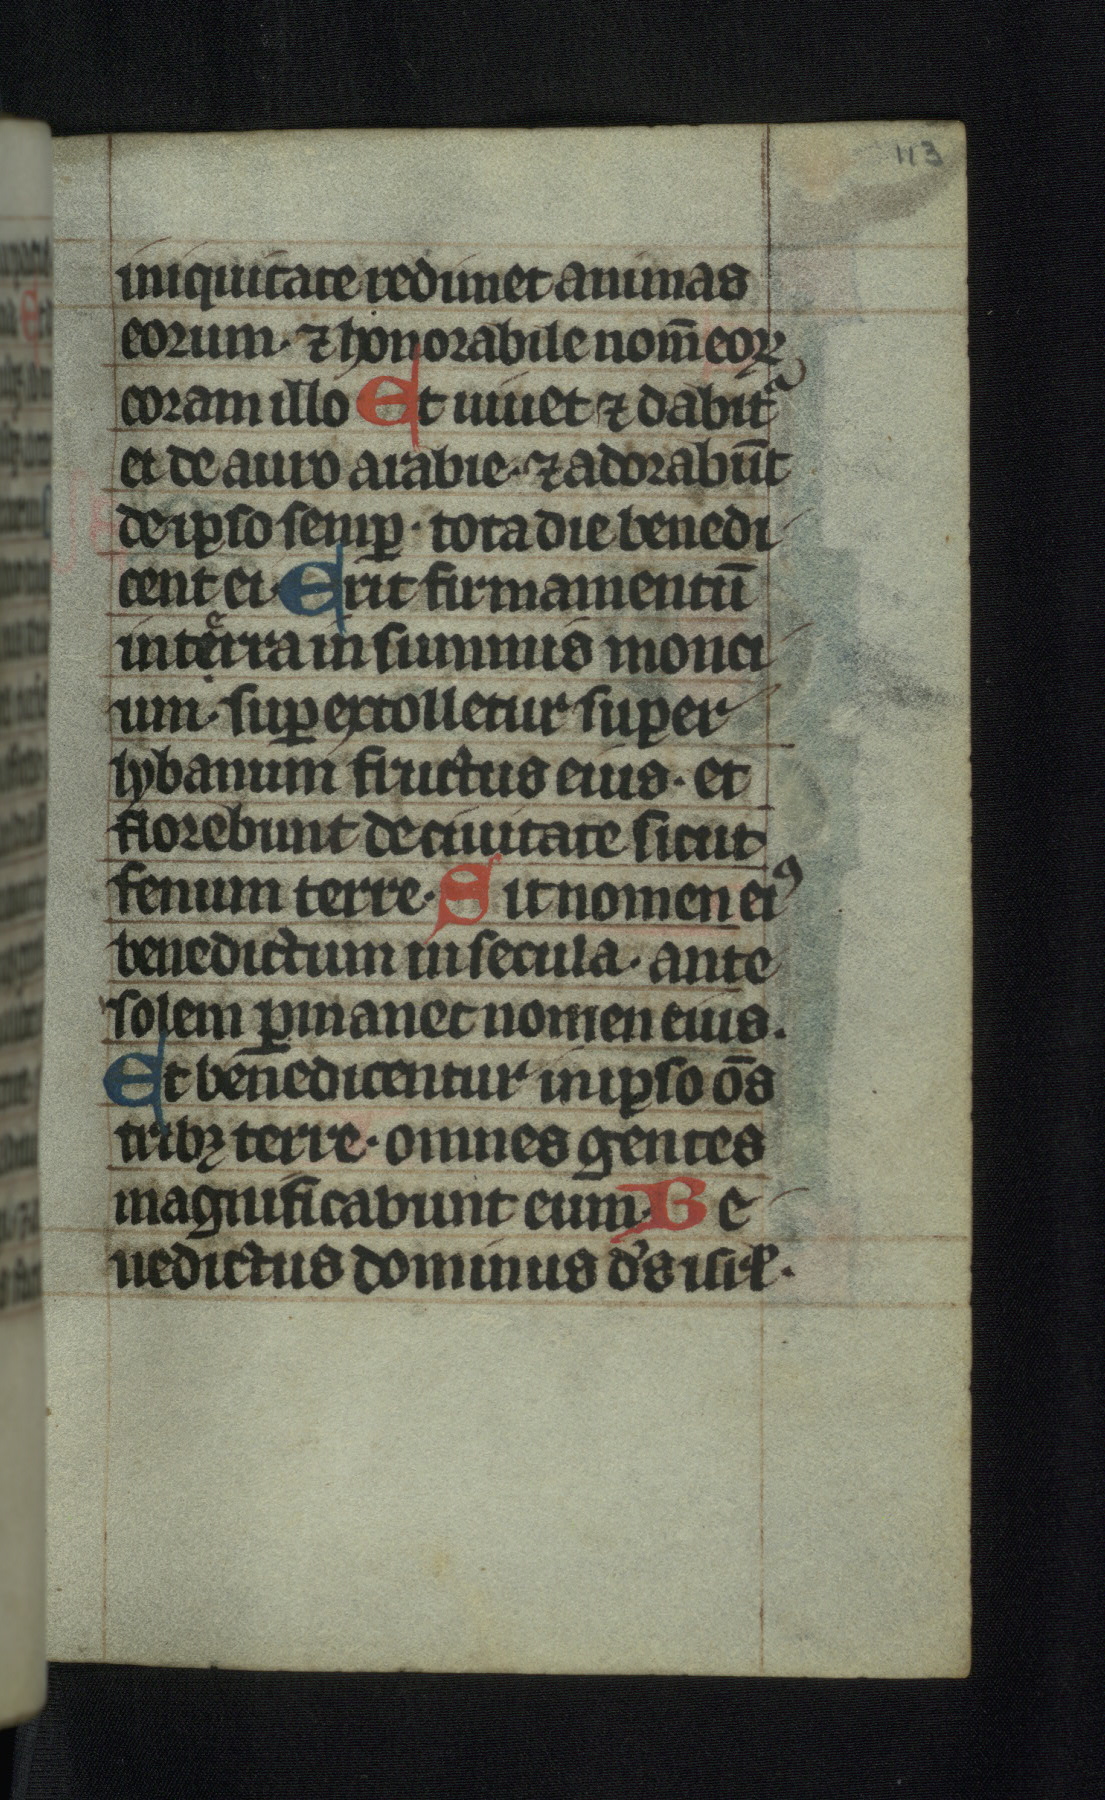 113
iniquitate redimet animas
eorum · ⁊ honorabile nom̄ eoꝝ
coram illo Et uiuet ⁊ dabitᵃ
et de auro arabie · ⁊ adorabūt
de ipso semꝑ · tota die benedi
cent ei · Erit firmamentū
in teͤrra in summis monci
um · suꝑ extolletur super
lybanum fructus eius · et
florebunt de ciuitate sicut
fenum terre · Sit nomen eiꝰ
benedictum in secula · ante
solem ꝑmanet nomen eius ·
Et benedicentur in ipso ōs
tribꝫ terre · omnes gentes
magnificabunt eum · Be
nedictus dominus d's isrł ·